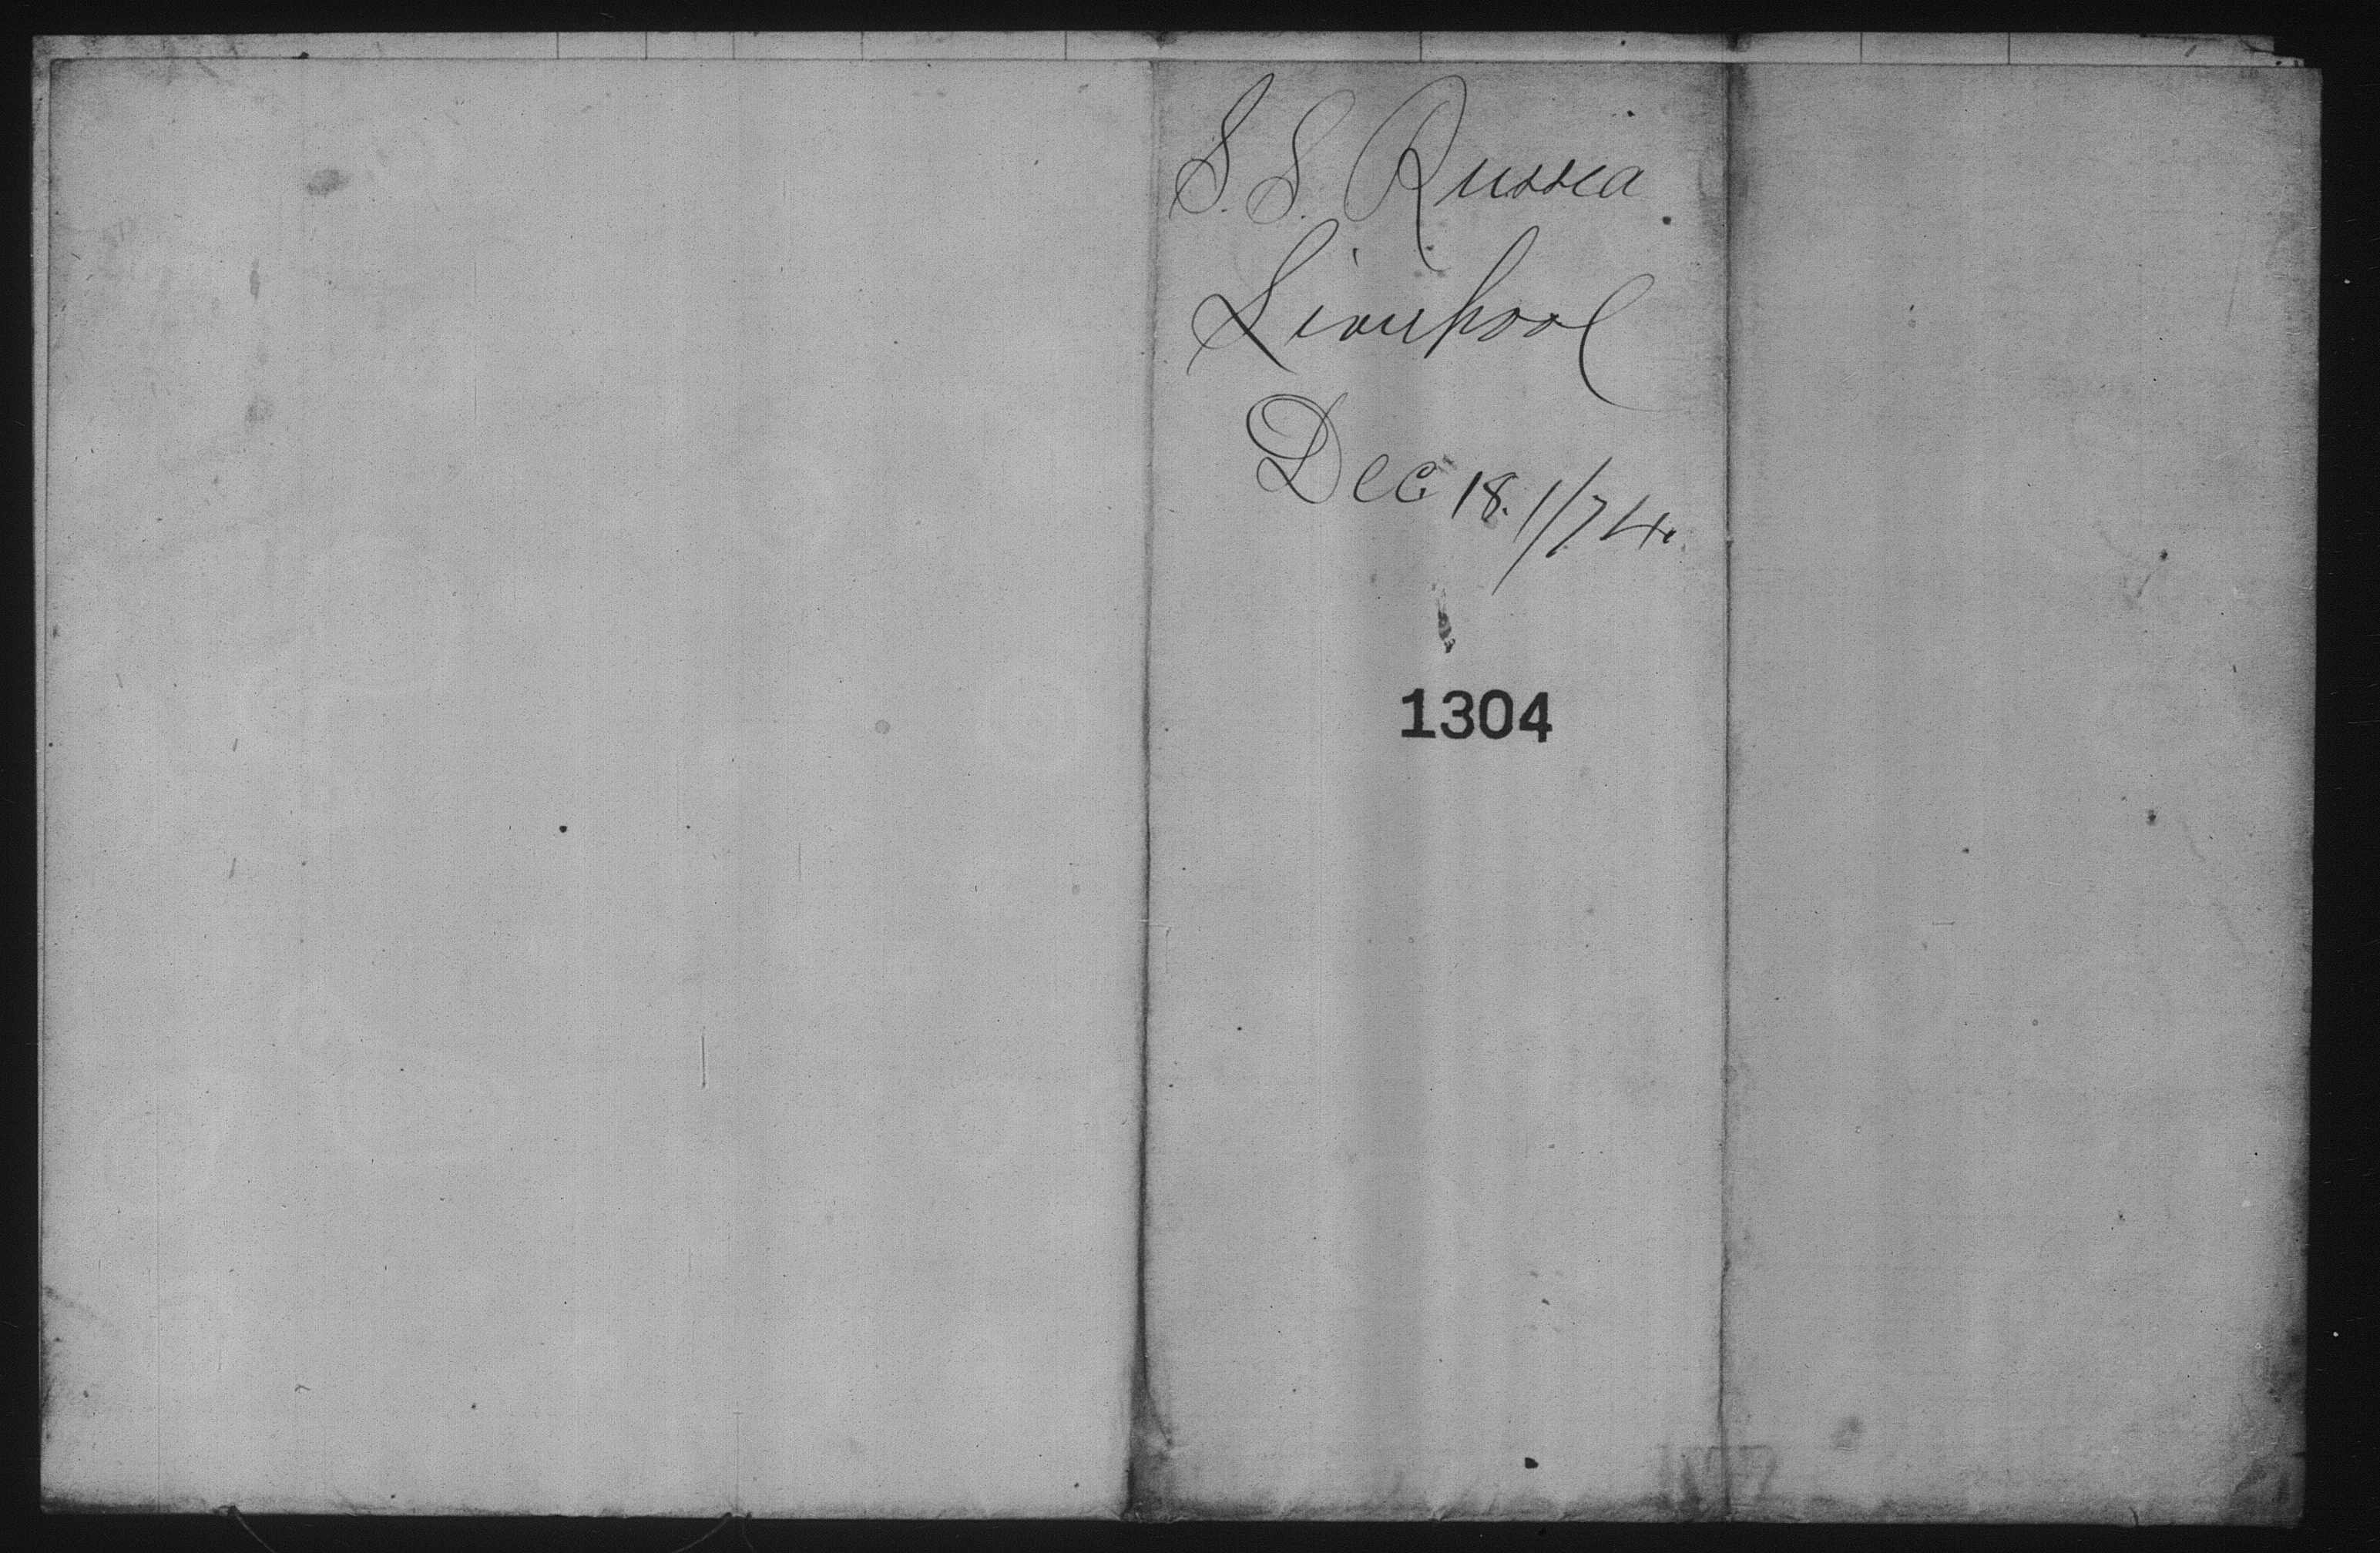 S.S. Russia
Liverpool
Dec 18. 1/74.
1304